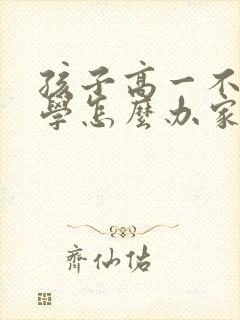 孩子高一不
學怎麼办家
齊仙佑